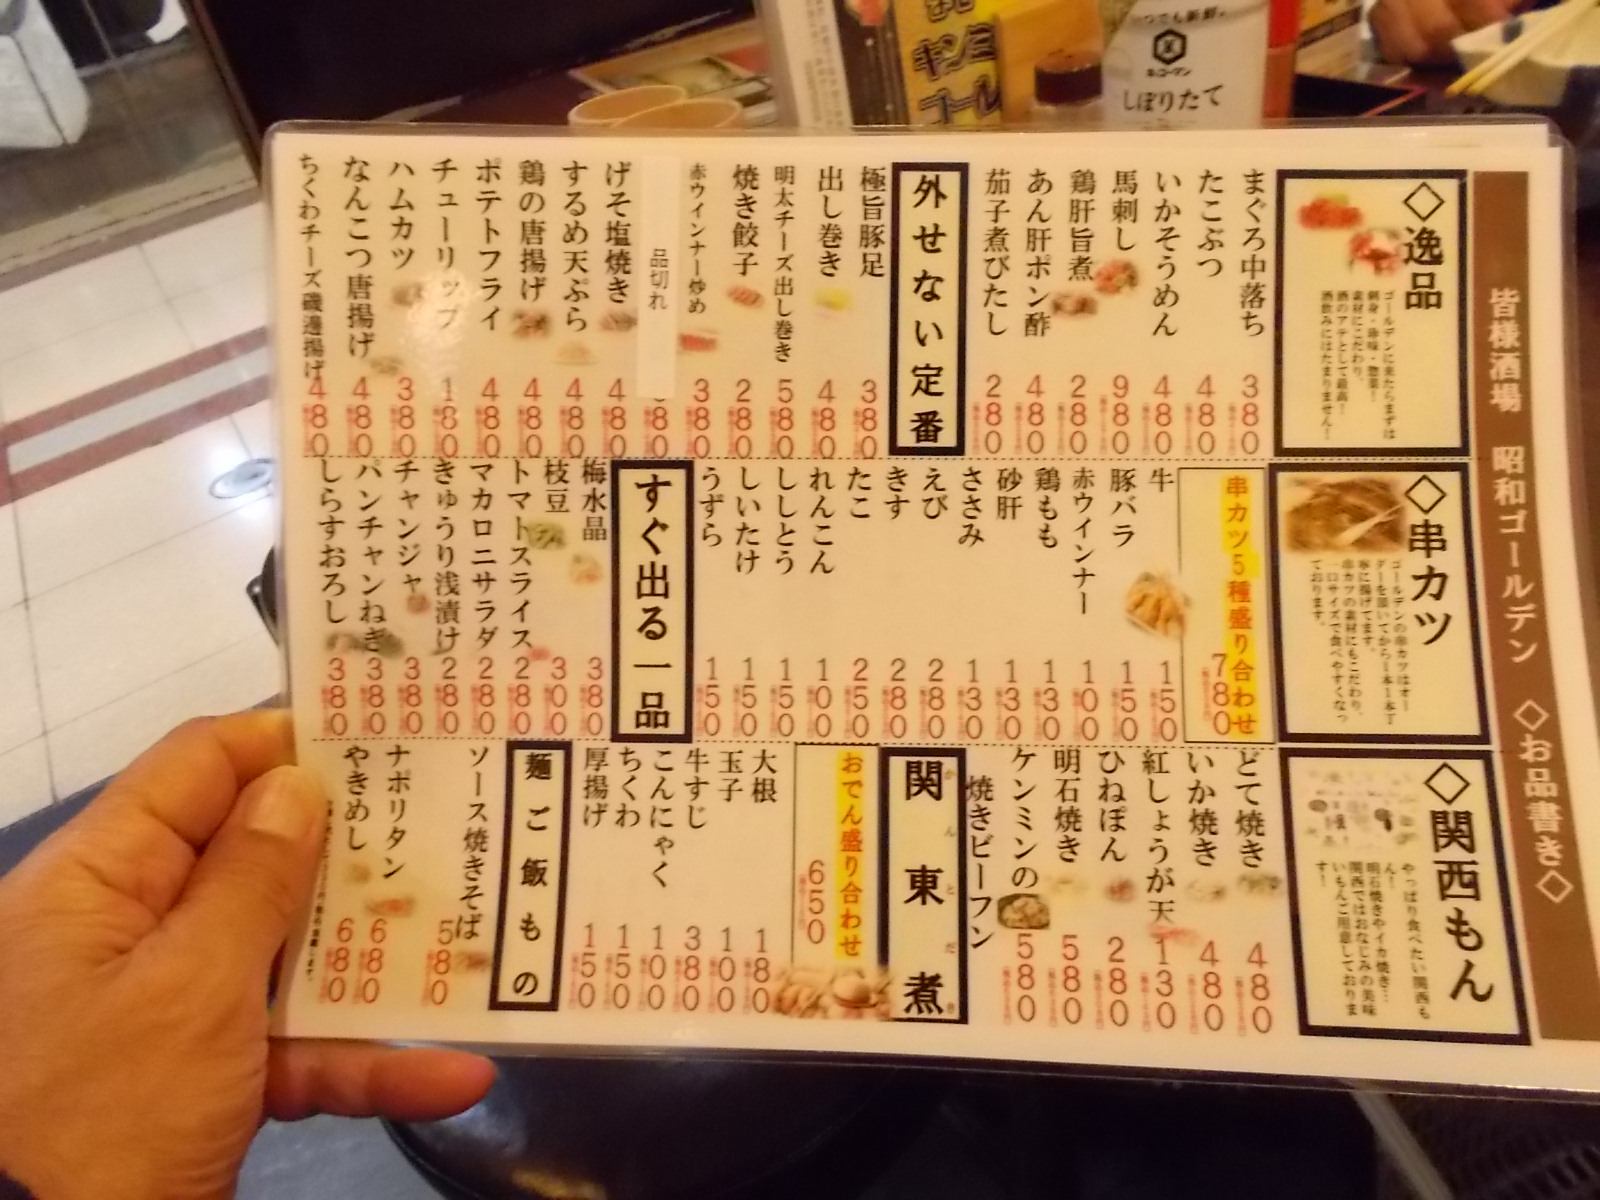 皆様酒場 昭和ゴールデン ◇お品書き◇
◇逸品
ゴールデンに来たらまずは
刺身・珍味・惣菜!
素材にこだわり、
酒のアテとして最高!
酒飲みにはたまりません!
まぐろ中落ち 380
たこぶつ 480
いかそうめん 480
馬刺し 980
鶏肝旨煮 280
あん肝ポン酢 480
茄子煮びたし 280
外せない定番
極旨豚足 380
出し巻き 480
明太チーズ出し巻き 580
焼き餃子 280
赤ウインナー炒め 380
品切れ 80
げそ塩焼き 480
するめ天ぷら 480
鶏の唐揚げ 480
ポテトフライ 480
チューリップ 180
ハムカツ 380
なんこつ唐揚げ 480
ちくわチーズ磯邊揚げ 480
◇串カツ
ゴールデンの串カツはオー
ダーを頂いてから1本1本丁
寧に揚げてます。
串カツの素材にもこだわり、
一口サイズで食べやすくなっ
ております。
串カツ5種盛り合わせ 780
牛 150
豚バラ 150
赤ウインナー 100
鶏もも 130
砂肝 130
ささみ 130
えび 280
きす 280
たこ 250
れんこん 100
ししとう 150
しいたけ 150
うずら 150
すぐ出る一品
梅水晶 380
枝豆 300
トマトスライス 280
マカロニサラダ 280
きゅうり浅漬け 280
チャンジャ 380
パンチャンねぎ 380
しらすおろし 380
◇関西もん
やっぱり食べたい関西も
ん!
明石焼きやイカ焼き…
関西ではおなじみの美味
いもんご用意しておりま
す!
どて焼き 480
いか焼き 480
紅しょうが天 130
ひねぽん 280
明石焼き 580
ケンミンの
焼きビーフン 580
関東煮
かんとだき
おでん盛り合わせ 650
大根 180
玉子 100
牛すじ 380
こんにゃく 100
ちくわ 150
厚揚げ 150
麺ご飯もの
ソース焼きそば 580
ナポリタン 680
やきめし 680
いつでも新鮮
キッコーマン
しぼりたて